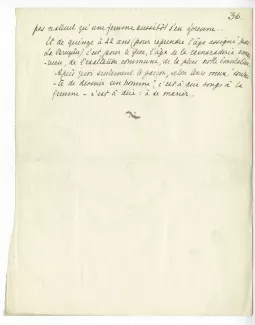 36.
pas naturel qu'une femme aussitôt s'en éprenne..
Et de quinze à 22 ans, (pour reprendre l'âge assigné par
La Bruyère) c'est pour le grec, l'âge de la camaraderie amou-
-reuse, de l'exaltation commune, de la plus noble émulation.
Après quoi seulement le garçon, selon leurs vœux souhai-
-te de devenir un homme", c'est à dire songe à la
femme – c'est à dire : à se marier.